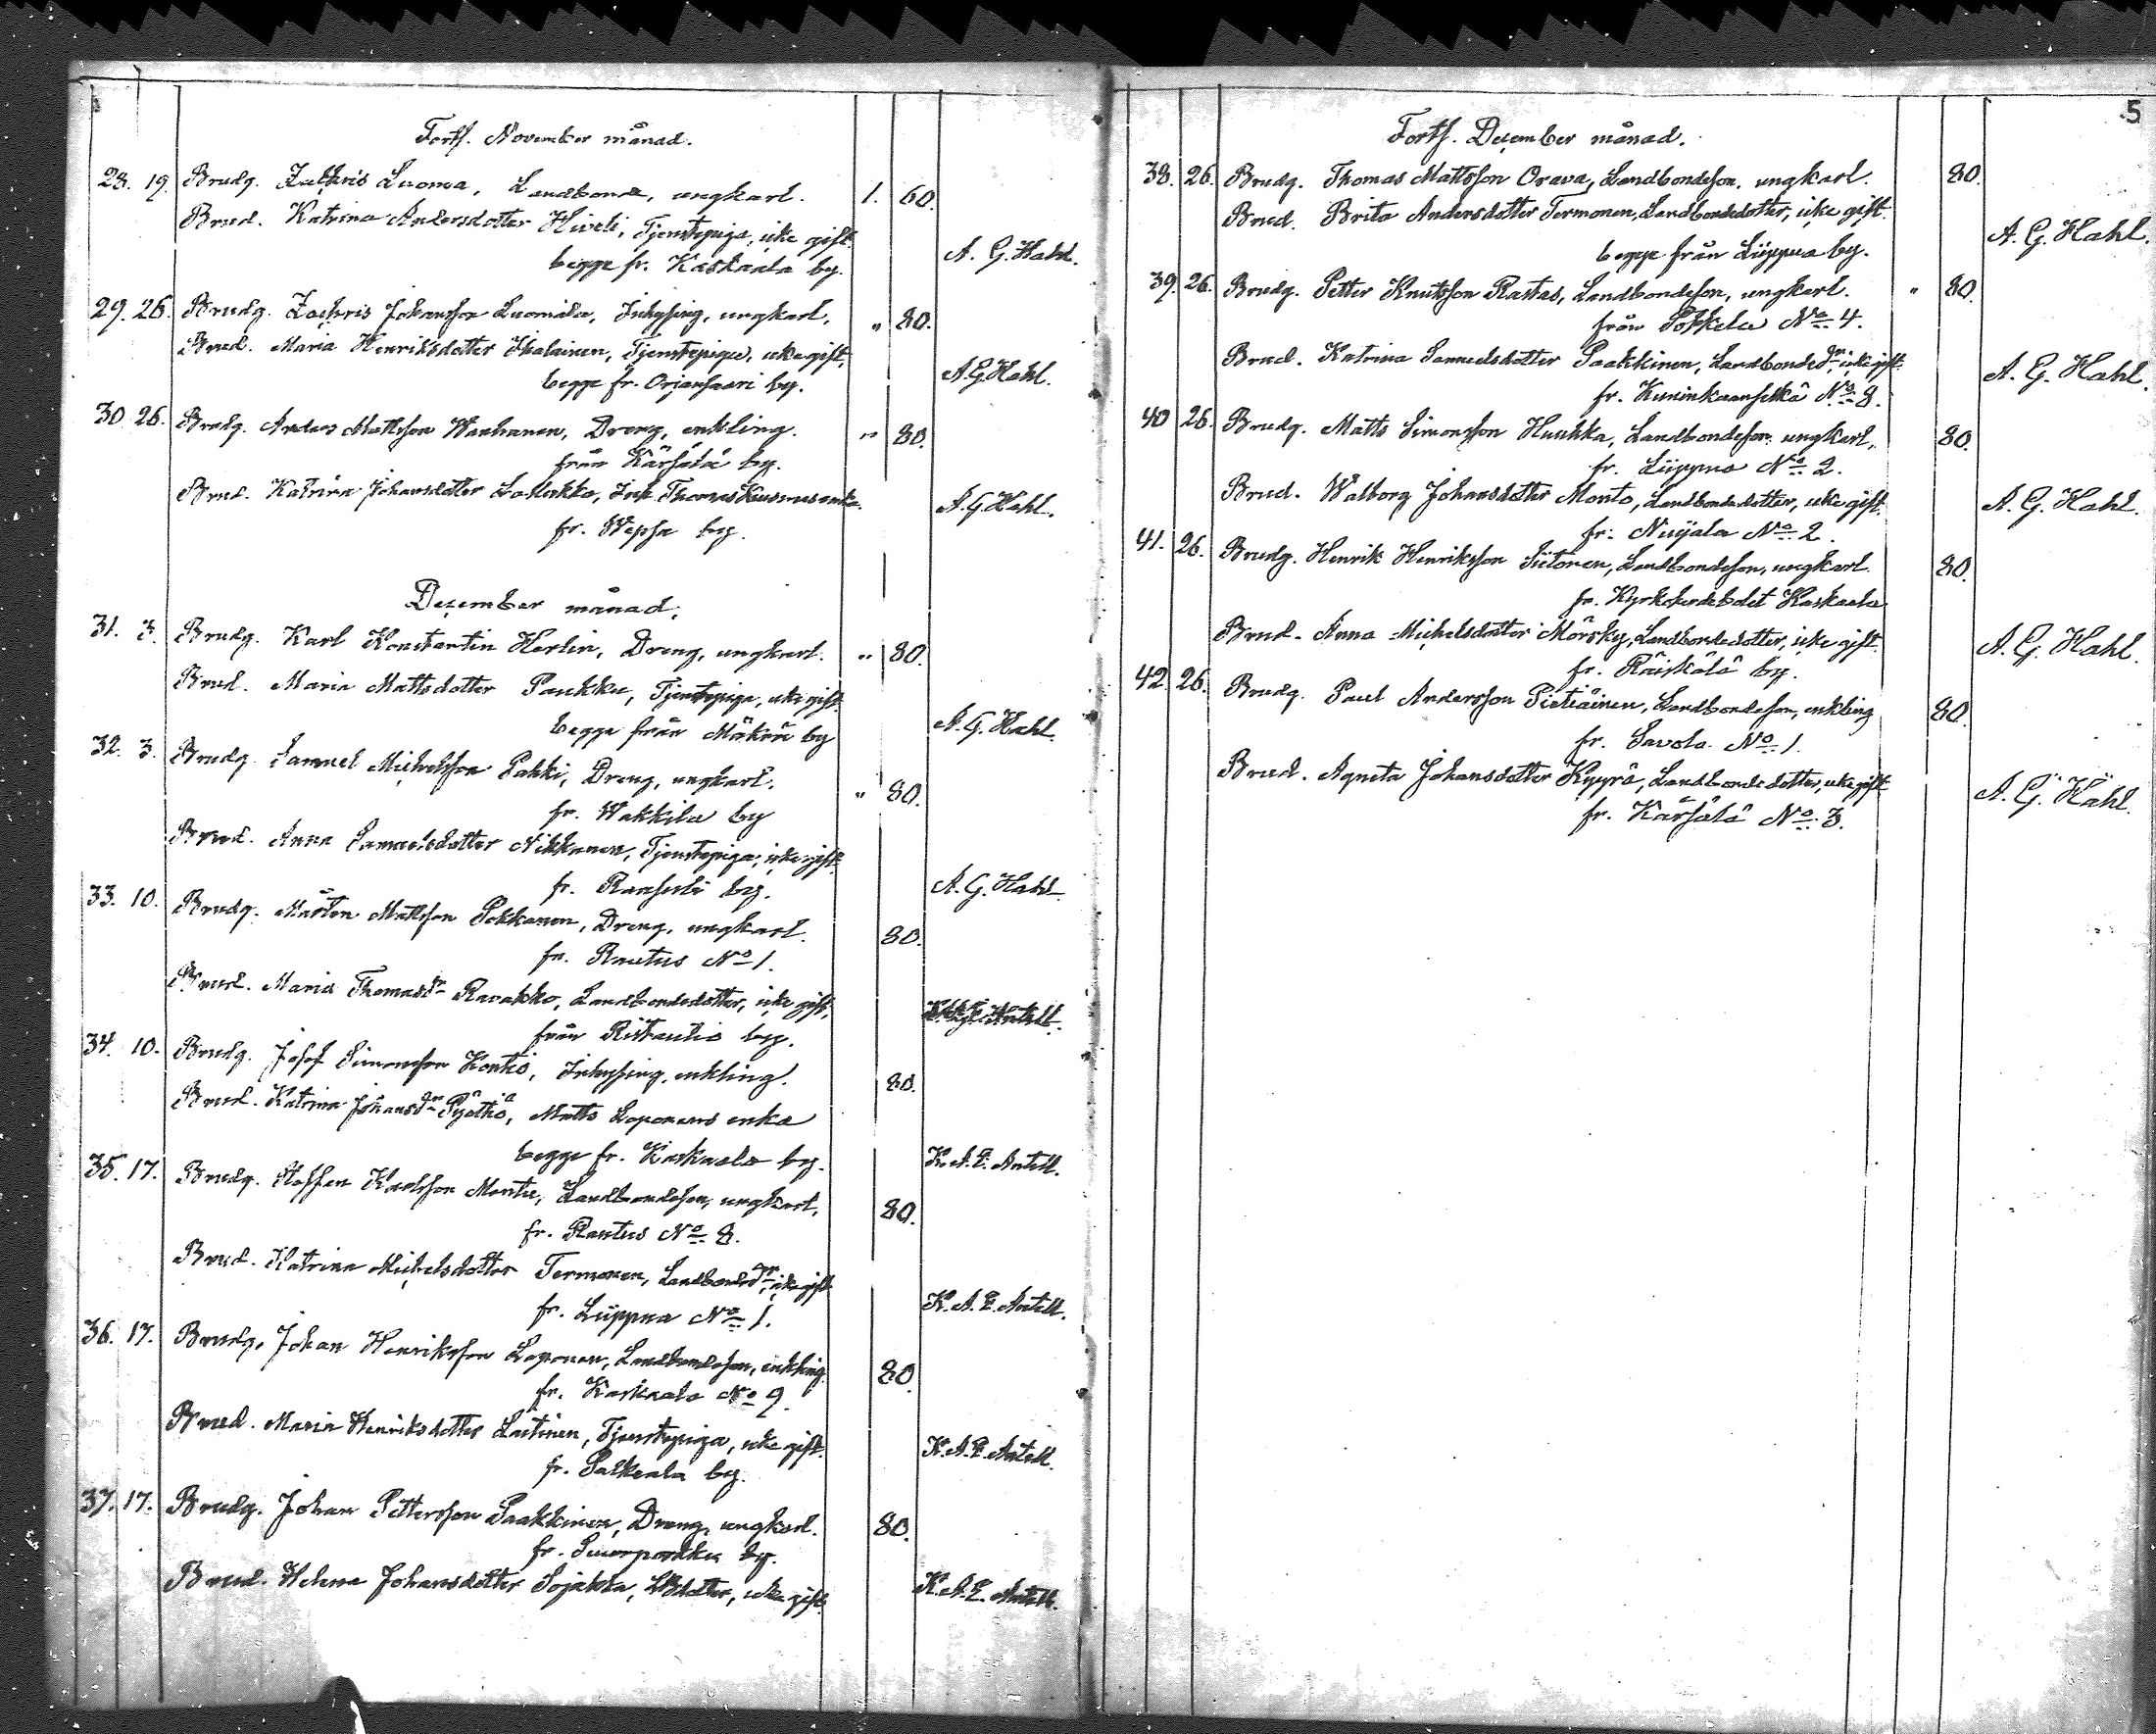 Fortf. November månad.
28. 19. Brudg. Zachris Luoma, Landbonde, ungkarl. 1. 60.
Brud. Katrina Andersdotter Hiveli, Tjenstepiga, icke gift.
begge fr. Kaskaala by. A. G. Hahl.
29. 26. Brudg. Zachris Johansson Luomala, Inhysing, ungkarl, " 80.
Brud. Maria Henriksdotter Ikalainen, Tjenstepiga, icke gift,
begge fr. Orjansaari by. A. G. Hahl.
30. 26. Brudg. Anders Mattsson Wanhanen, Dreng, enkling. " 80.
från Kärsälä by.
Brud. Katrina Johansdotter Inh. Thomas enka.
fr. Wepsa by. A. G. Hahl.
December månad.
31. 3. Brudg. Karl Konstantin Herlin, Dreng, ungkarl. " 80.
Brud. Maria Mattsdotter Paukku, Tjenstepiga, icke gift.
begge från Mäkrä by A. G. Hahl.
32. 3. Brudg. Samuel Michelsson Pahki, Dreng, ungkarl. " 80.
fr. Wakkila by
Brud. Anna Samuelsdotter Nikkanen, Tjenstepiga, icke gift.
fr. Ranfusti by. A. G. Hahl.
33. 10. Brudg. Mårten Mattsson Pekkanen, Dreng, ungkarl. 80.
fr. Rautus No 1.
Brud. Maria Thomasdr Ravakko, Landbondedotter, icke gift,
från Ristautio by. K. A. E. Antell.
34. 10. Brudg. Josef Simonsson Kontio, Inhysing, enkling. 80.
Brud. Katrina Johansdr Pyötiä, Matts Loponens enka
begge fr. Kaskaala by. K. A. E. Antell.
35. 17. Brudg. Staffan Karlsson Monto, Landbondeson, ungkarl, 80.
fr. Rautus No 8.
Brud. Katrina Michelsdotter Termonen, Landbondedr, icke gift
fr. Liippua No 1. K. A. E. Antell.
36. 17. Brudg. Johan Henriksson Loponen, Landbondeson, enkling. 80.
fr. Kaskaala No 9.
Brud. Maria Henriksdotter Laitinen, Tjenstepiga, icke gift.
fr. Palkeala by. K. A. E. Antell.
37. 17. Brudg. Johan Pettersson Paakkinen, Dreng, ungkarl. 80.
fr. Suurporkku by.
Brud. Helena Johansdotter Sojakka, LBdotter, icke gift. K. A. E. Antell.
5
Fortf. December månad.
38. 26. Brudg. Thomas Mattsson Orava, Landbondeson, ungkarl. 80.
Brud. Brita Andersdotter Termonen, Landbondedotter, icke gift.
begge från Liippua by. A. G. Hahl.
39. 26. Brudg. Petter Knutsson Rastas, Landbondeson, ungkarl. " 80.
från Potkela No 4.
Brud. Katrina Samuelsdotter Paakkinen, Landbondedr, icke gift.
fr. Kuninkaanselkä No 8. A. G. Hahl.
40 26. Brudg. Matts Simonsson Huuhka, Landbondeson, ungkarl, 80.
fr. Liippua No 2.
Brud. Walborg Johansdotter Monto, Landbondedotter, icke gift.
fr. Nuijala No 2. A. G. Hahl.
41. 26. Brudg. Henrik Henriksson Siitonen, Landbondeson, ungkarl. 80.
fr. Kyrkoherdebolet Kaskaala
Brud. Anna Michelsdotter Mörsky, Landbondedotter, icke gift.
fr. Räiskälä by. A. G. Hahl.
42. 26. Brudg. Paul Andersson Pietiäinen, Landbondeson, enkling 80.
fr. Savola No 1.
Brud. Agneta Johansdotter Kyyrö, Landbondedotter, icke gift
fr. Kärsälä No 3. A. G. Hahl.